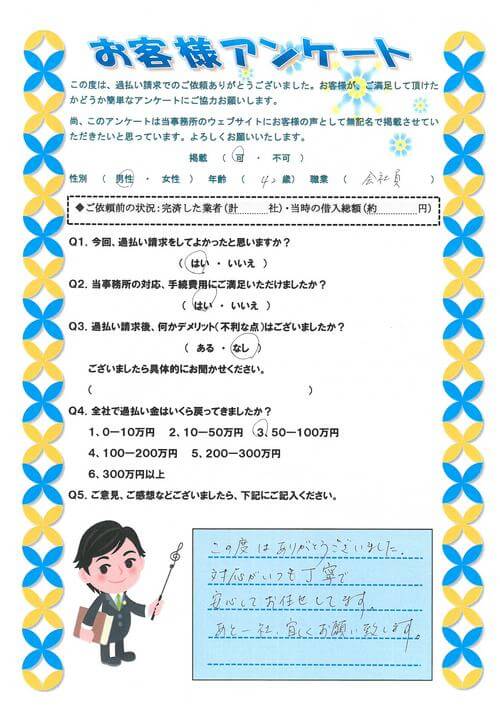 お客様アンケート
この度は、過払い請求でのご依頼ありがとうございました。お客様が、ご満足して頂けた
かどうか簡単なアンケートにご協力お願いします。
尚、このアンケートは当事務所のウェブサイトにお客様の声として無記名で掲載させてい
ただきたいと思っています。よろしくお願いいたします。
掲載 （ 可 ・ 不可 ）
性別 （ 男性 ・ 女性 ） 年齢 （ 42 歳） 職業 （ 会社員 ）
◆ご依頼前の状況：完済した業者（計 社）・当時の借入総額（約 円）
Q1．今回、過払い請求をしてよかったと思いますか？
（ はい ・ いいえ ）
Q2．当事務所の対応、手続費用にご満足いただけましたか？
（ はい ・ いいえ ）
Q3．過払い請求後、何かデメリット（不利な点）はございましたか？
（ ある ・ なし ）
ございましたら具体的にお聞かせください。
（ ）
Q4．全社で過払い金はいくら戻ってきましたか？
1、0－10万円 2、10－50万円 3、50－100万円
4、100－200万円 5、200－300万円
6、300万円以上
Q5．ご意見、ご感想などございましたら、下記にご記入ください。
この度はありがとうございました。
対応がいつも丁寧で
安心してお任せしてます。
あと一社、宜しくお願い致します。